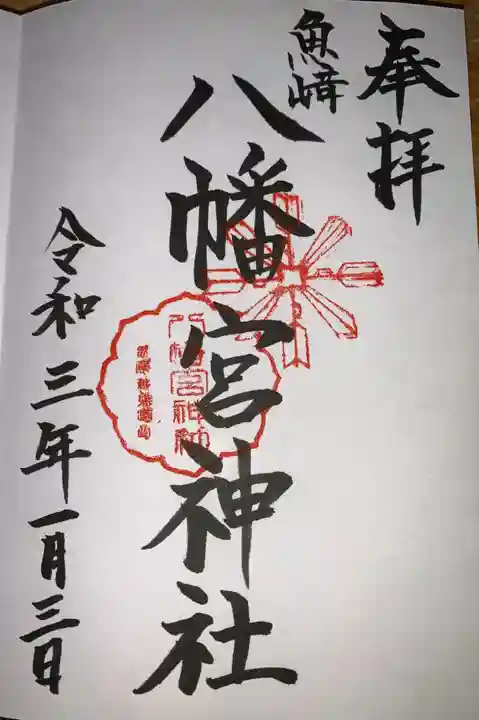 奉拝
魚﨑
八幡宮神社
八幡宮神社
令和三年一月三日